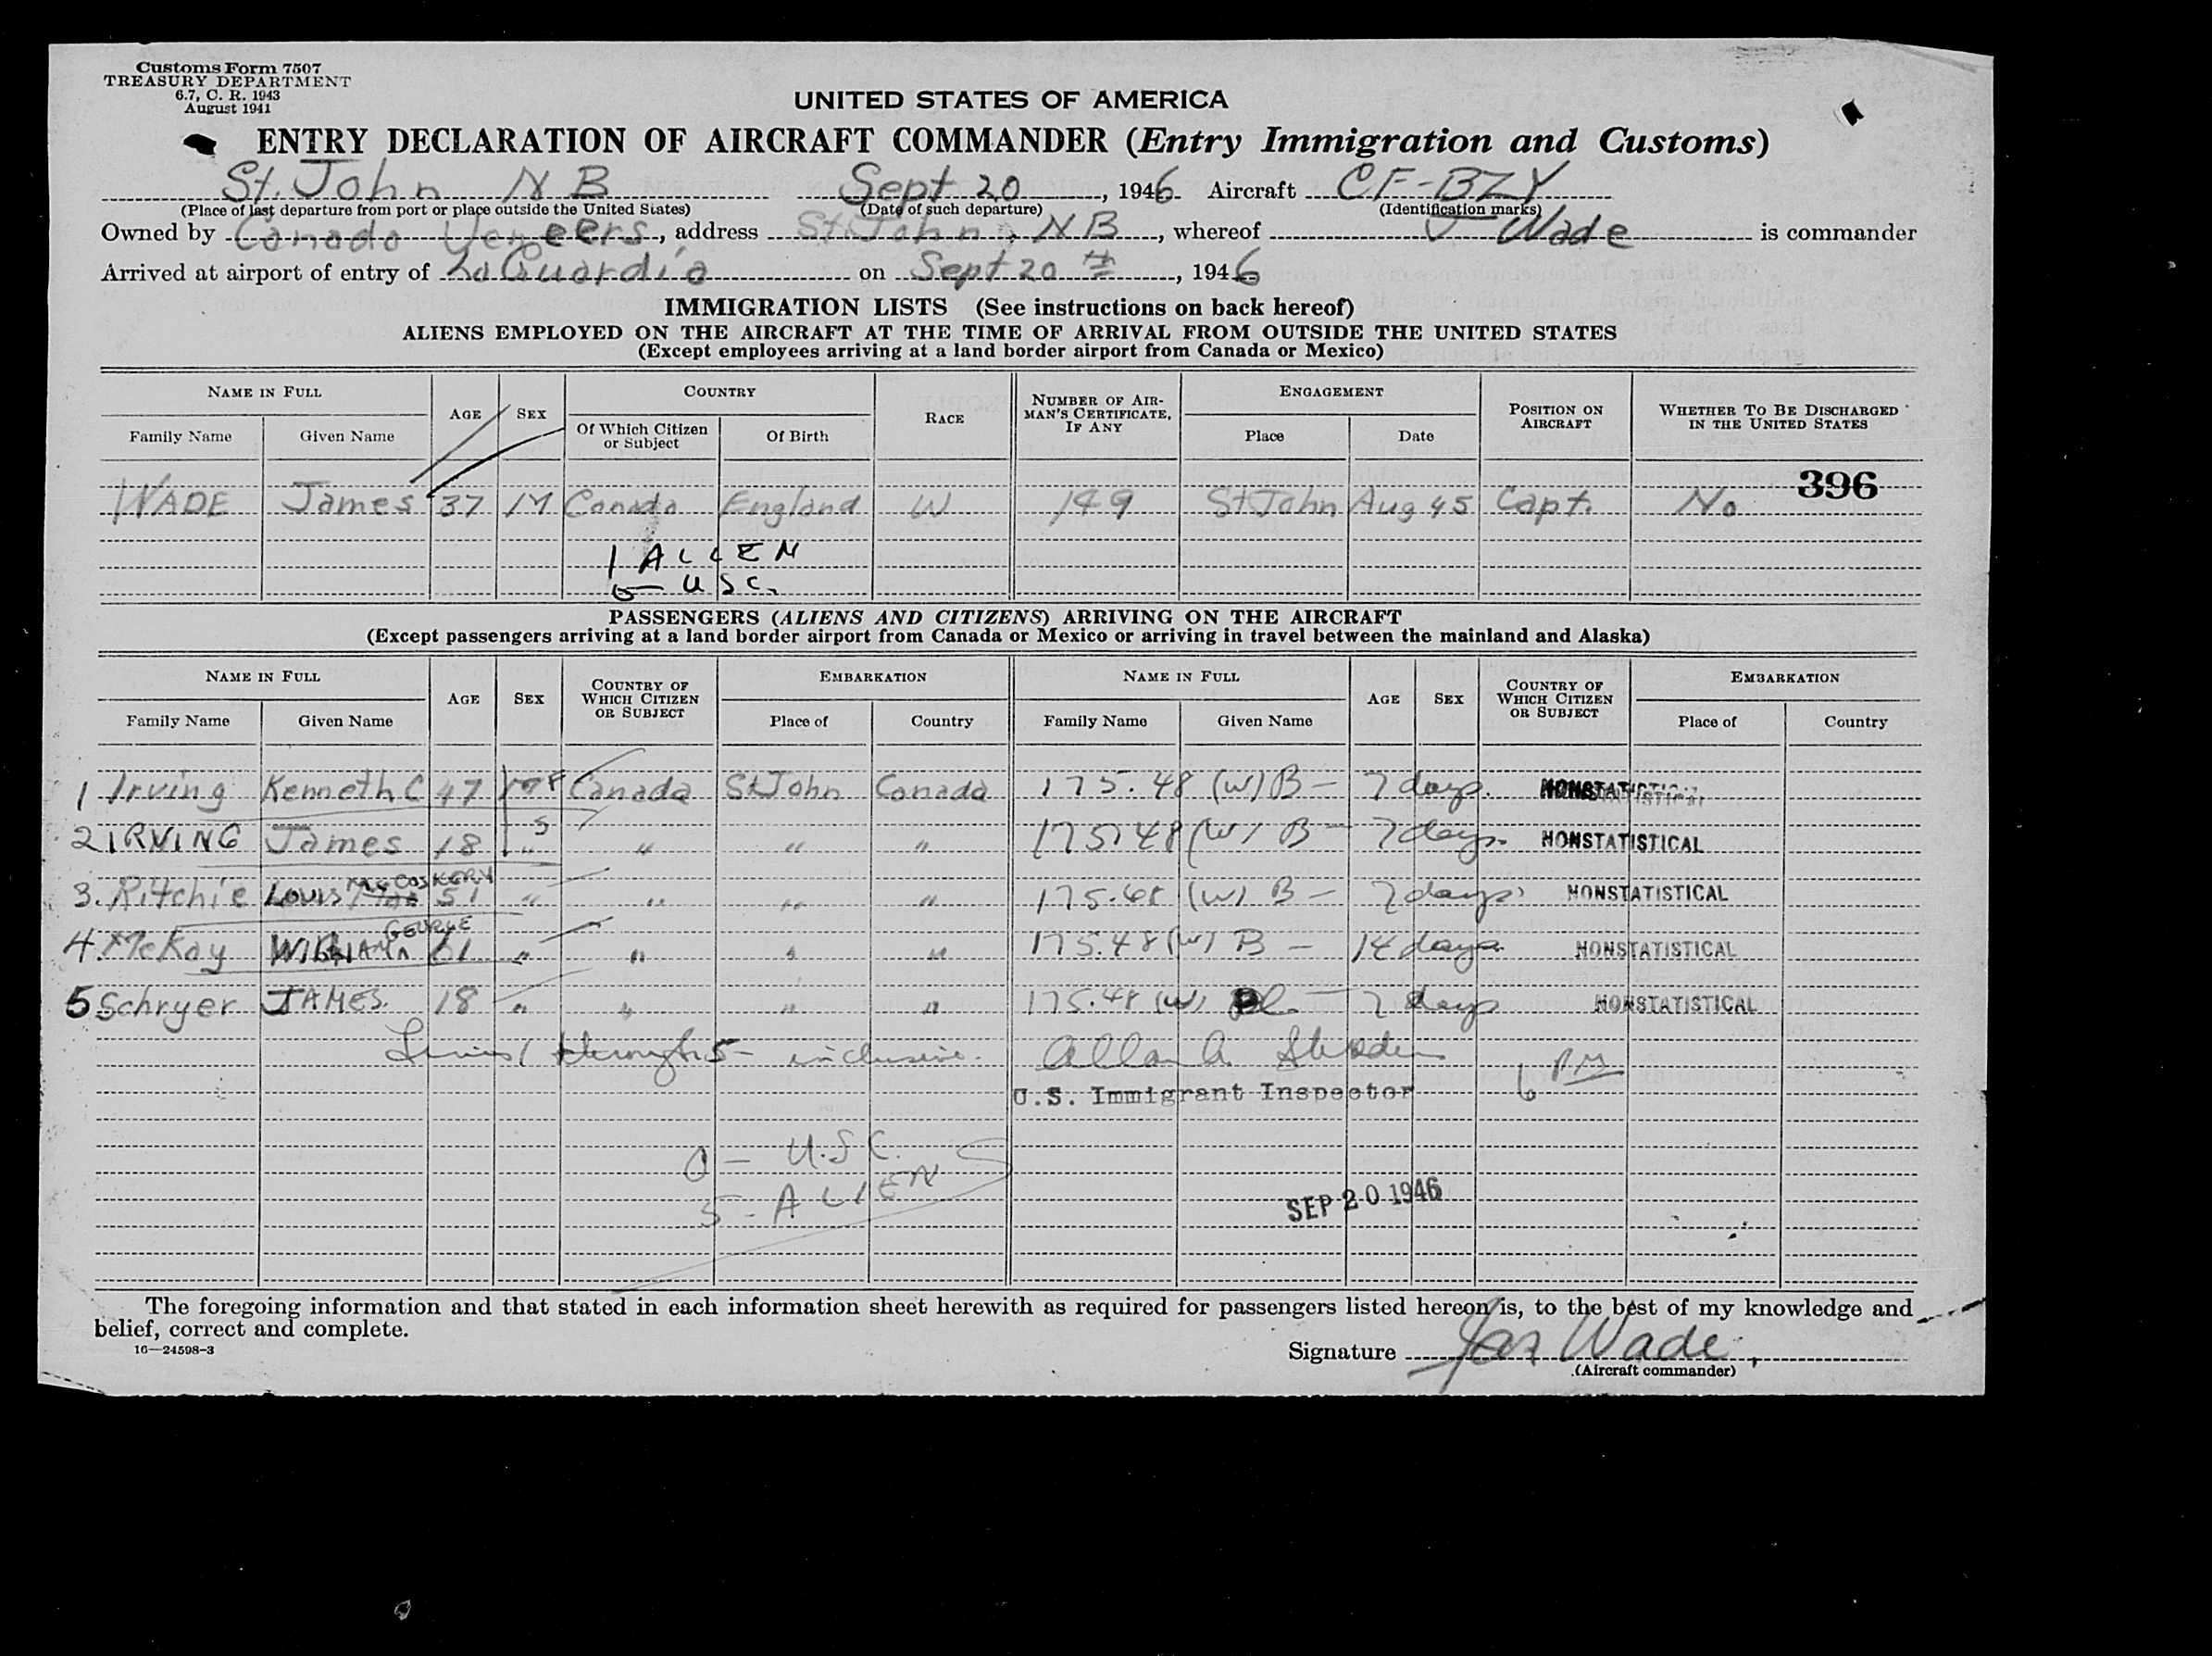 Customs Form 7507
TREASURY DEPARTMENT
6.7, C. R. 1943
August 1941
UNITED STATES OF AMERICA
ENTRY DECLARATION OF AIRCRAFT COMMANDER (Entry Immigration and Customs)
St. John N B Sept 20, 1946 Aircraft CF-BZY
(Place of last departure from port or place outside the United States) (Date of such departure) (Identification marks)
Owned by Canada Veneers, address St. John, NB, whereof J Wade is commander
Arrived at airport of entry of LaGuardia on Sept 20th, 1946
IMMIGRATION LISTS (See instructions on back hereof)
ALIENS EMPLOYED ON THE AIRCRAFT AT THE TIME OF ARRIVAL FROM OUTSIDE THE UNITED STATES
(Except employees arriving at a land border airport from Canada or Mexico)
NAME IN FULL AGE SEX COUNTRY RACE NUMBER OF AIRMAN'S CERTIFICATE, IF ANY ENGAGEMENT POSITION ON AIRCRAFT WHETHER TO BE DISCHARGED IN THE UNITED STATES
Family Name Given Name Of Which Citizen or Subject Of Birth Place Date
396
WADE James 37 M Canada England W 149 St John Aug 45 Capt. No
1 ALIEN
0 — USC.
PASSENGERS (ALIENS AND CITIZENS) ARRIVING ON THE AIRCRAFT
(Except passengers arriving at a land border airport from Canada or Mexico or arriving in travel between the mainland and Alaska)
NAME IN FULL AGE SEX COUNTRY OF WHICH CITIZEN OR SUBJECT EMBARKATION NAME IN FULL AGE SEX COUNTRY OF WHICH CITIZEN OR SUBJECT EMBARKATION
Family Name Given Name Place of Country Family Name Given Name Place of Country
1 Irving Kenneth C 47 Canada St John Canada 175.48 (W) B — 7 days. NONSTATISTICAL
2 IRVING James 18 " " " " 175.48 (W) B — 7 days. NONSTATISTICAL
3. Ritchie Louis McCoskery 51 " " " " 175.48 (W) B — 7 days NONSTATISTICAL
4. McKay William GEORGE 61 " " " " 175.48 (W) B — 14 days NONSTATISTICAL
5 Schryer JAMES. 18 " " " " 175.48 (W) Pl. — 7 days NONSTATISTICAL
Lines 1 through 5 inclusive. Allan A.
6 PM
U.S. Immigrant Inspector
0 — U.S.C.
5 - ALIEN
SEP 20 1946
The foregoing information and that stated in each information sheet herewith as required for passengers listed hereon is, to the best of my knowledge and
belief, correct and complete.
16—24598-3
Signature Jas Wade
(Aircraft commander)